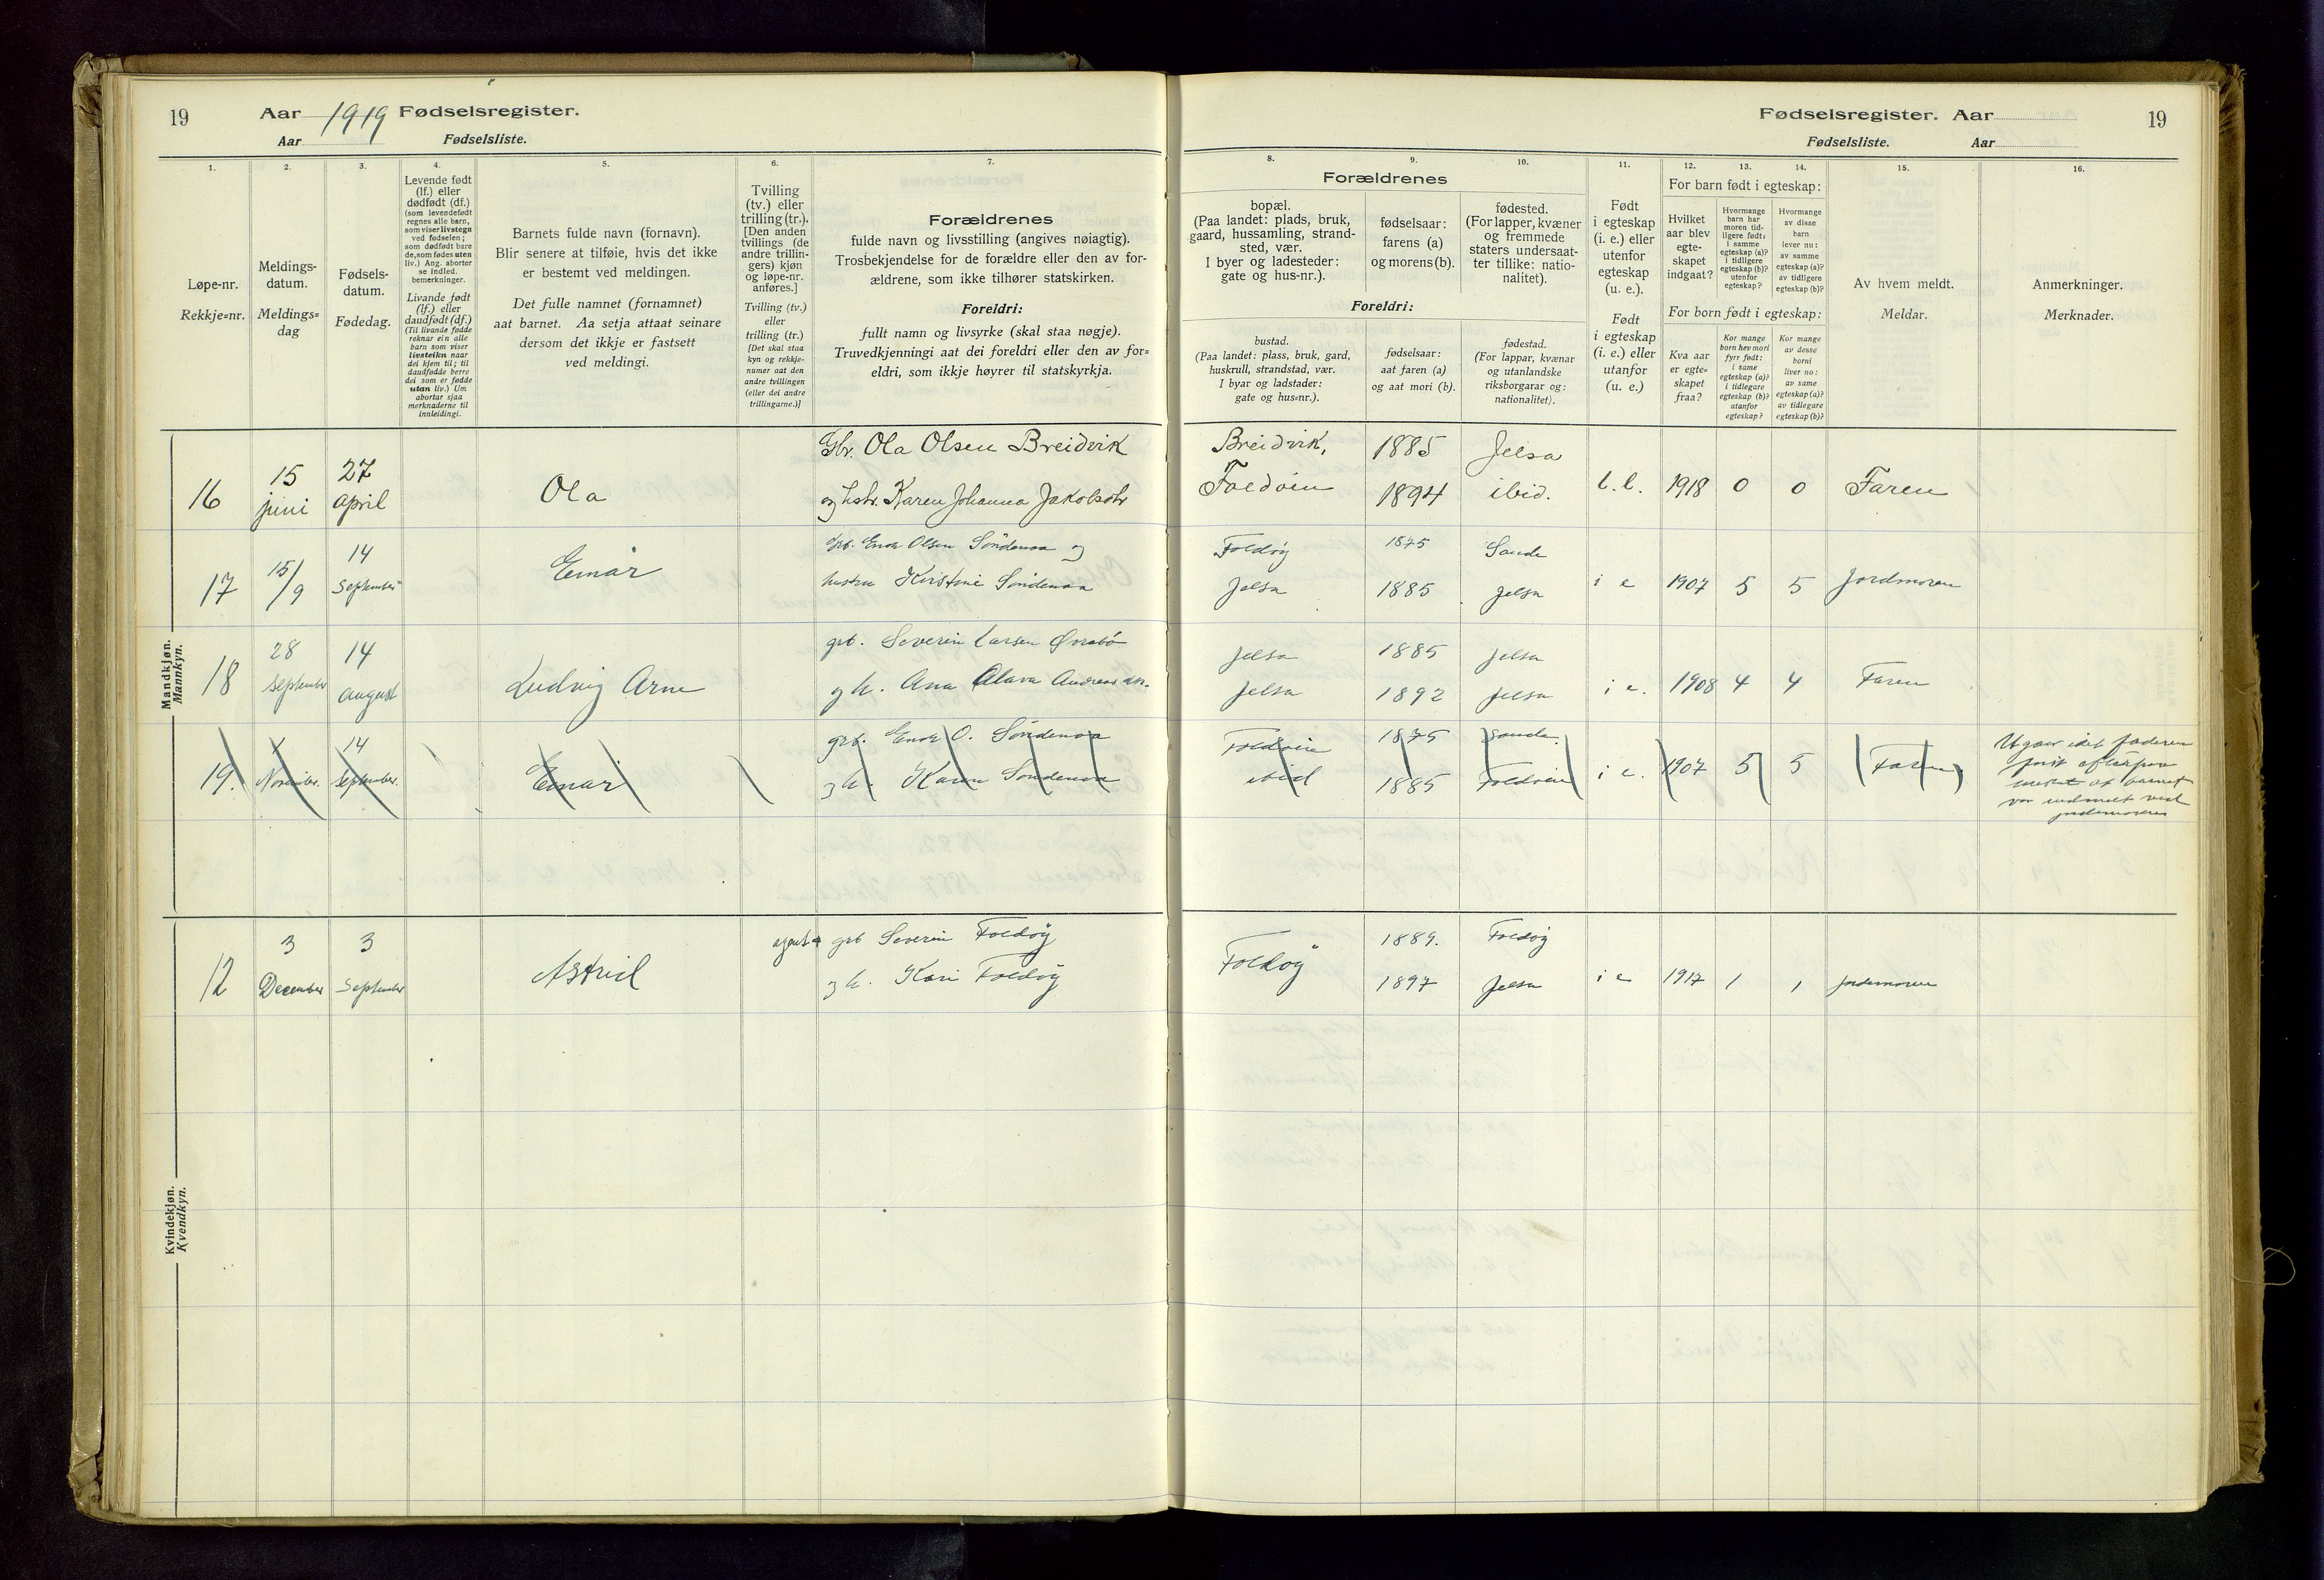 19
Aar 1919 Fødselsregister.
Aar Fødselsliste.
Fødselsregister. Aar
Fødselsliste. Aar
19
1.
Løpe-nr.
Rekkje=nr.
2.
Meldings-
datum.
Meldings=
dag
3.
Fødsels-
datum.
Fødedag.
4.
Levende født
(lf.) eller
dødfødt (df.)
(som levendefødt
regnes alle barn,
som viser livstegn
ved fødselen;
som dødfødt bare
de, som fødes uten
liv.) Ang. aborter
se indled.
bemerkninger.
Livande født
(lf.) eller
daudfødt (df.)
(Til livande fødde
reknar ein alle
barn som viser
livsteikn naar
dei kjem til; til
daudfødde berre
dei som er fødde
utan liv.) Um
abortar sjaa
merknaderne til
innleidingi.
5.
Barnets fulde navn (fornavn).
Blir senere at tilføie, hvis det ikke
er bestemt ved meldingen.
Det fulle namnet (fornamnet)
aat barnet. Aa setja attaat seinare
dersom det ikkje er fastsett
ved meldingi.
6.
Tvilling
(tv.) eller
trilling (tr.).
[Den anden
tvillings (de
andre trillin-
gers) kjøn
og løpe-nr.
anføres.]
Tvilling (tv.)
eller
trilling (tr.)
[Det skal staa
kyn og rekkje-
numer aat den
andre tvillingen
(eller dei andre
trillingarne.)]
7.
Forældrenes
fulde navn og livsstilling (angives nøiagtig).
Trosbekjendelse for de forældre eller den av for-
ældrene, som ikke tilhører statskirken.
Foreldri:
fullt namn og livsyrke (skal staa nøgje).
Truvedkjenningi aat dei foreldri eller den av for=
eldri, som ikkje høyrer til statskyrkja.
Forældrenes
8.
bopæl.
(Paa landet: plads, bruk,
gaard, hussamling, strand-
sted, vær.
I byer og ladesteder:
gate og hus-nr.).
9.
fødselsaar:
farens (a)
og morens (b).
10.
fødested.
(For lapper, kvæner
og fremmede
staters undersaat-
ter tillike: natio-
nalitet).
Foreldri:
bustad.
(Paa landet: plass, bruk, gard,
huskrull, strandstad, vær.
I byar og ladstader:
gate og hus=nr.).
fødselsaar:
aat faren (a)
og aat mori (b).
fødestad.
(For lappar, kvænar
og utanlandske
riksborgarar og:
nationalitet).
11.
Født
i egteskap
(i. e.) eller
utenfor
egteskap
(u. e.).
Født
i egteskap
(i. e.) eller
utanfor
egteskap
(u. e.)
12. 13. 14.
For barn født i egteskap:
Hvilket
aar blev
egte-
skapet
indgaat?
Hvormange
barn har
moren tid-
ligere født:
i samme
egteskap (a)?
i tidligere
egteskap (b)?
utenfor
egteskap?
Hvormange
av disse
barn
lever nu:
av samme
egteskap (a)?
av tidligere
egteskap (b)?
For born født i egteskap:
Kva aar
er egte=
skapet
fraa?
Kor mange
born hev mori
fyrr født:
i same
egteskap (a)?
i tidlegare
egteskap (b)?
utanfor
egteskap?
Kor mange
av desse
borni
liver no:
av same
egteskap (a)?
av tidlegare
egteskap (b)?
15.
Av hvem meldt.
Meldar.
16.
Anmerkninger.
Merknader.
Mandkjøn.
Mannkyn.
Gbr. Ola Olsen Breidvik Breidvik, 1885 Jelsa
16 15 juni 27 april Ola og hstr. Karen Johanna Jakobsdtr Foldøin 1894 ibid. 1918 0 0 Faren
grb. Endr Olsen Søndenaa og Foldøy 1875 Sande
17 15/9 14 September Einar hustru Kirstine Søndenaa Jelsa 1885 Jelsa i e 1907 5 5 Jordmoren
grb. Severin Larsen Jelsa 1885 Jelsa
18 28 September 14 august Ludvig Arne og h. Ana Olava Jelsa 1892 Jelsa i e. 1908 4 4 Faren
grb. Endr O. Søndenaa Foldøin 1875 Sande
19. November. 14 September. Einar og h. Karen Søndenaa ibid 1885 Foldøin i e. 1907 5 5 Faren
Utgaar idet faderen
at barnet
var indmeldt ved
jordemoderen
Kvindekjøn.
Kvendkyn.
grb Severin Foldøy Foldøy 1889. Foldøy
12 3 December 3 September Astrid og h. Kari Foldøy 1897 Jelsa i e 1917 1 1 jordemoren